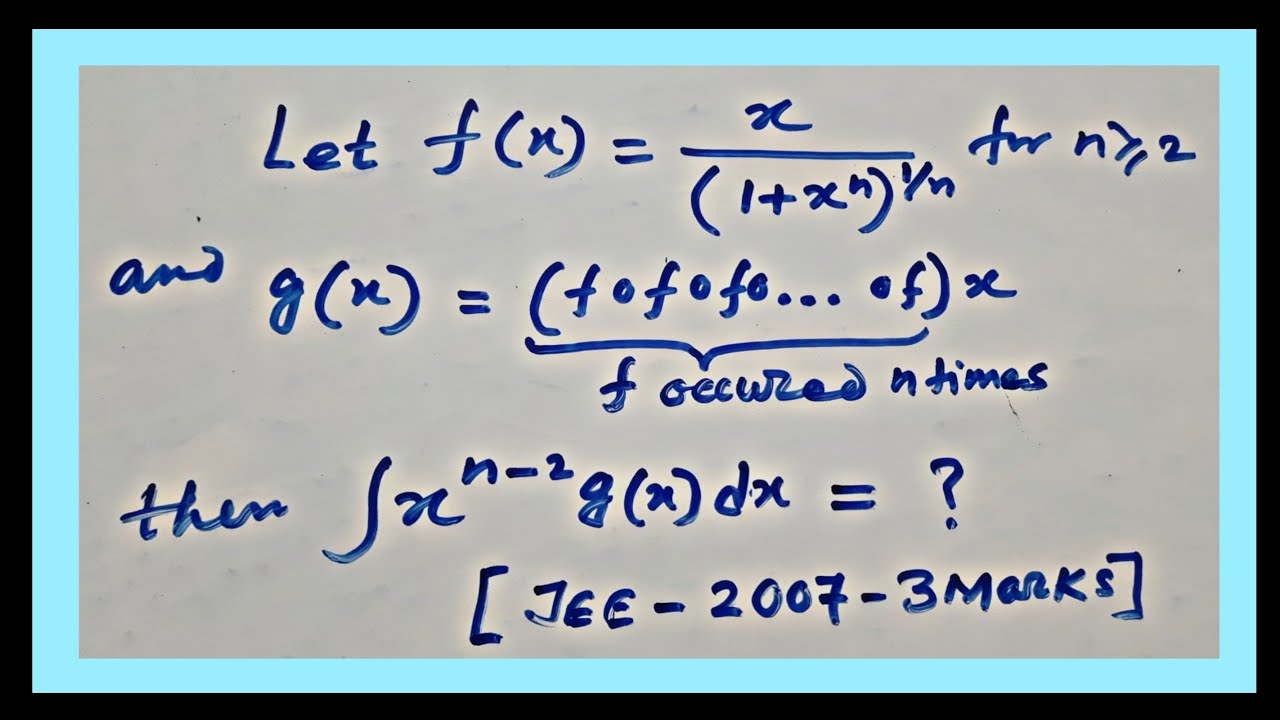 Let f(x) = x / (1+xⁿ)^1/n for n≥2
and g(x) = (fofofo... of)x
f occured n times
then ∫x^n-2 g(x) dx = ?
[JEE - 2007 - 3 Marks]